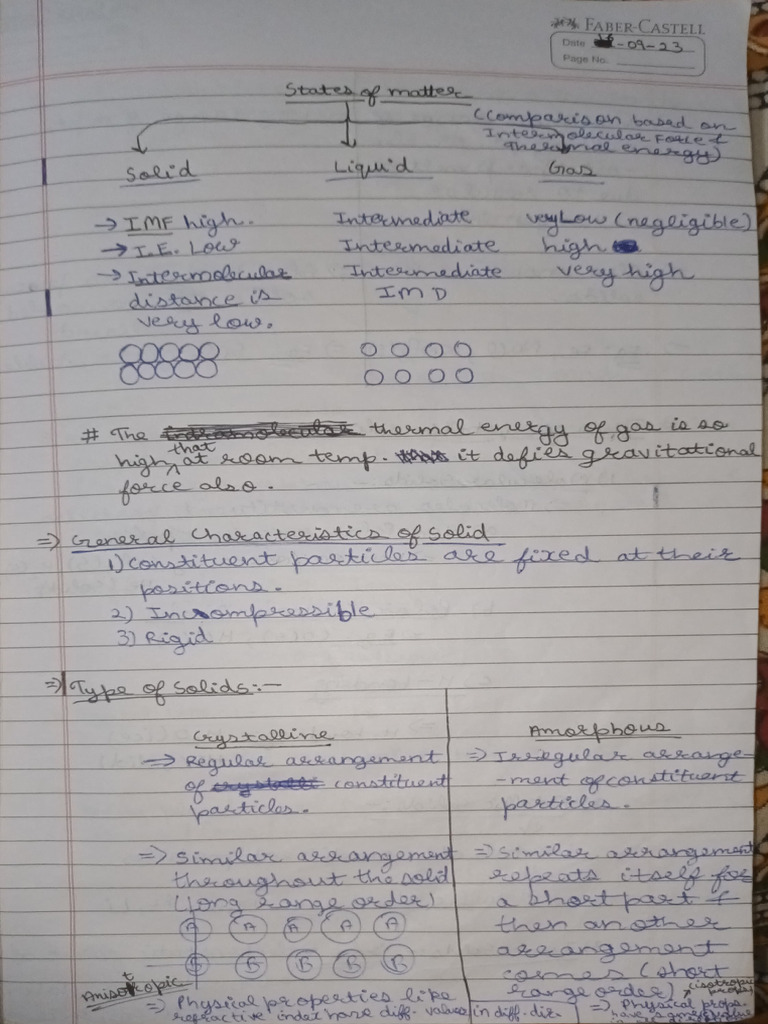 FABER-CASTELL
Date -09-23
Page No.
States of matter
(Comparison based on
Intermolecular Force &
Thermal energy)
Solid Liquid Gas
→ IMF high. Intermediate very Low (negligible)
→ I.E. Low Intermediate high
→ Intermolecular Intermediate very high
distance is IMD
very low.
# The thermal energy of gas is so
high that at room temp. it defies gravitational
force also.
⇒ General Characteristics of Solid
1) constituent particles are fixed at their
positions.
2) Incompressible
3) Rigid
⇒ Type of Solids:-
Crystalline Amorphous
⇒ Regular arrangement ⇒ Irregular arrange-
of constituent -ment of constituent
particles. particles.
⇒ Similar arrangement ⇒ Similar arrangement
throughout the solid repeats itself for
(long range order) a short part &
A A A A A then another
arrangement
B B B B comes (short
Anisotropic range order)
⇒ Physical properties like ⇒ Physical props.
refractive index have diff. values in diff. dir.